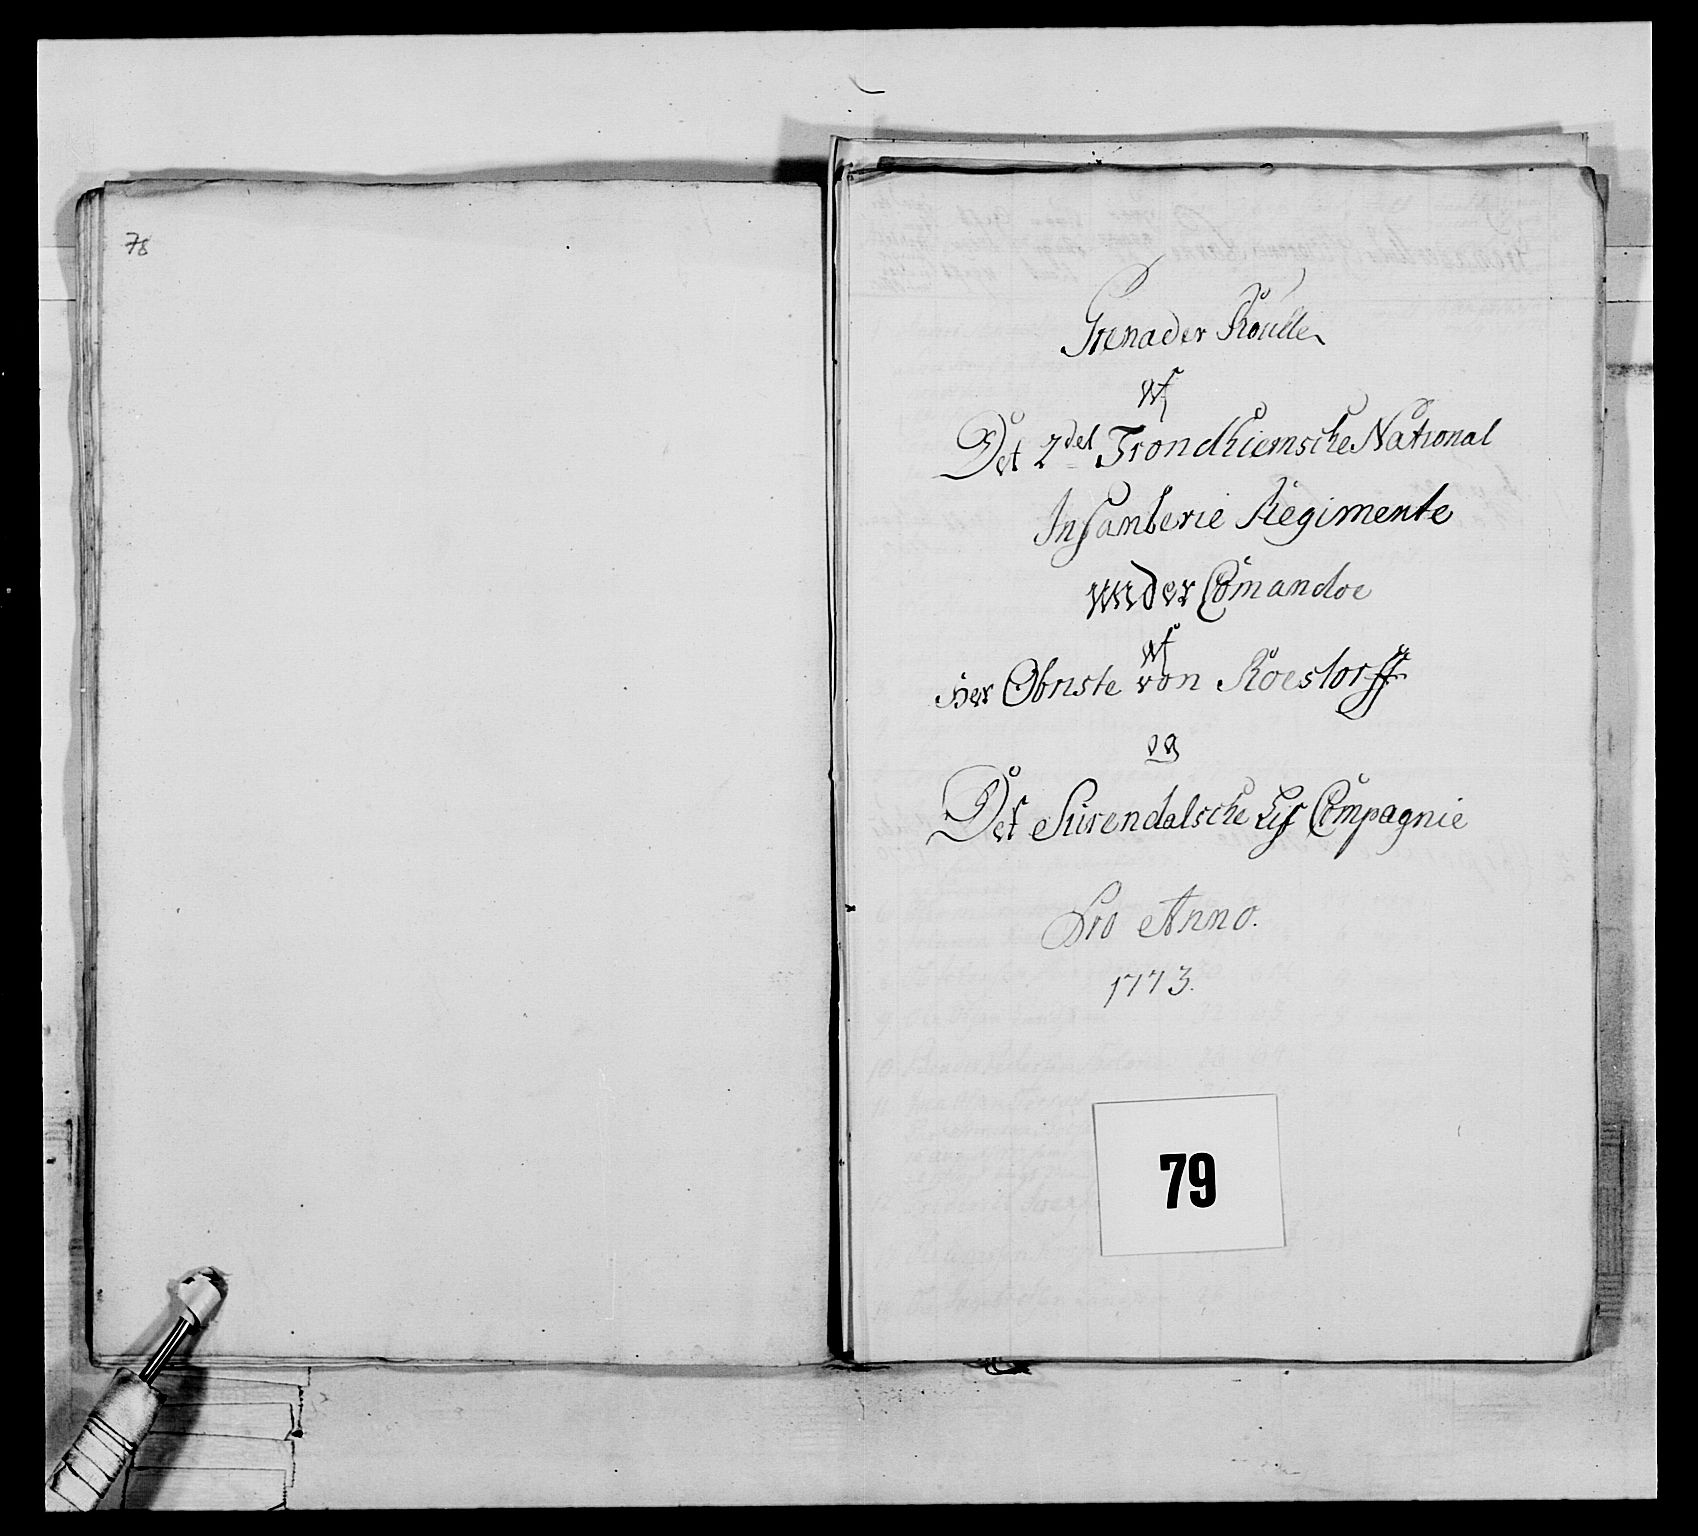 78
Grenader Roulle
af
Det 2det Trondhiemsche National
Infanterie Regimente
under Comandoe
af
Her Obriste von Roestorff
og
Det Surendalsche Lif Compagnie
Pro Anno.
1773.
79